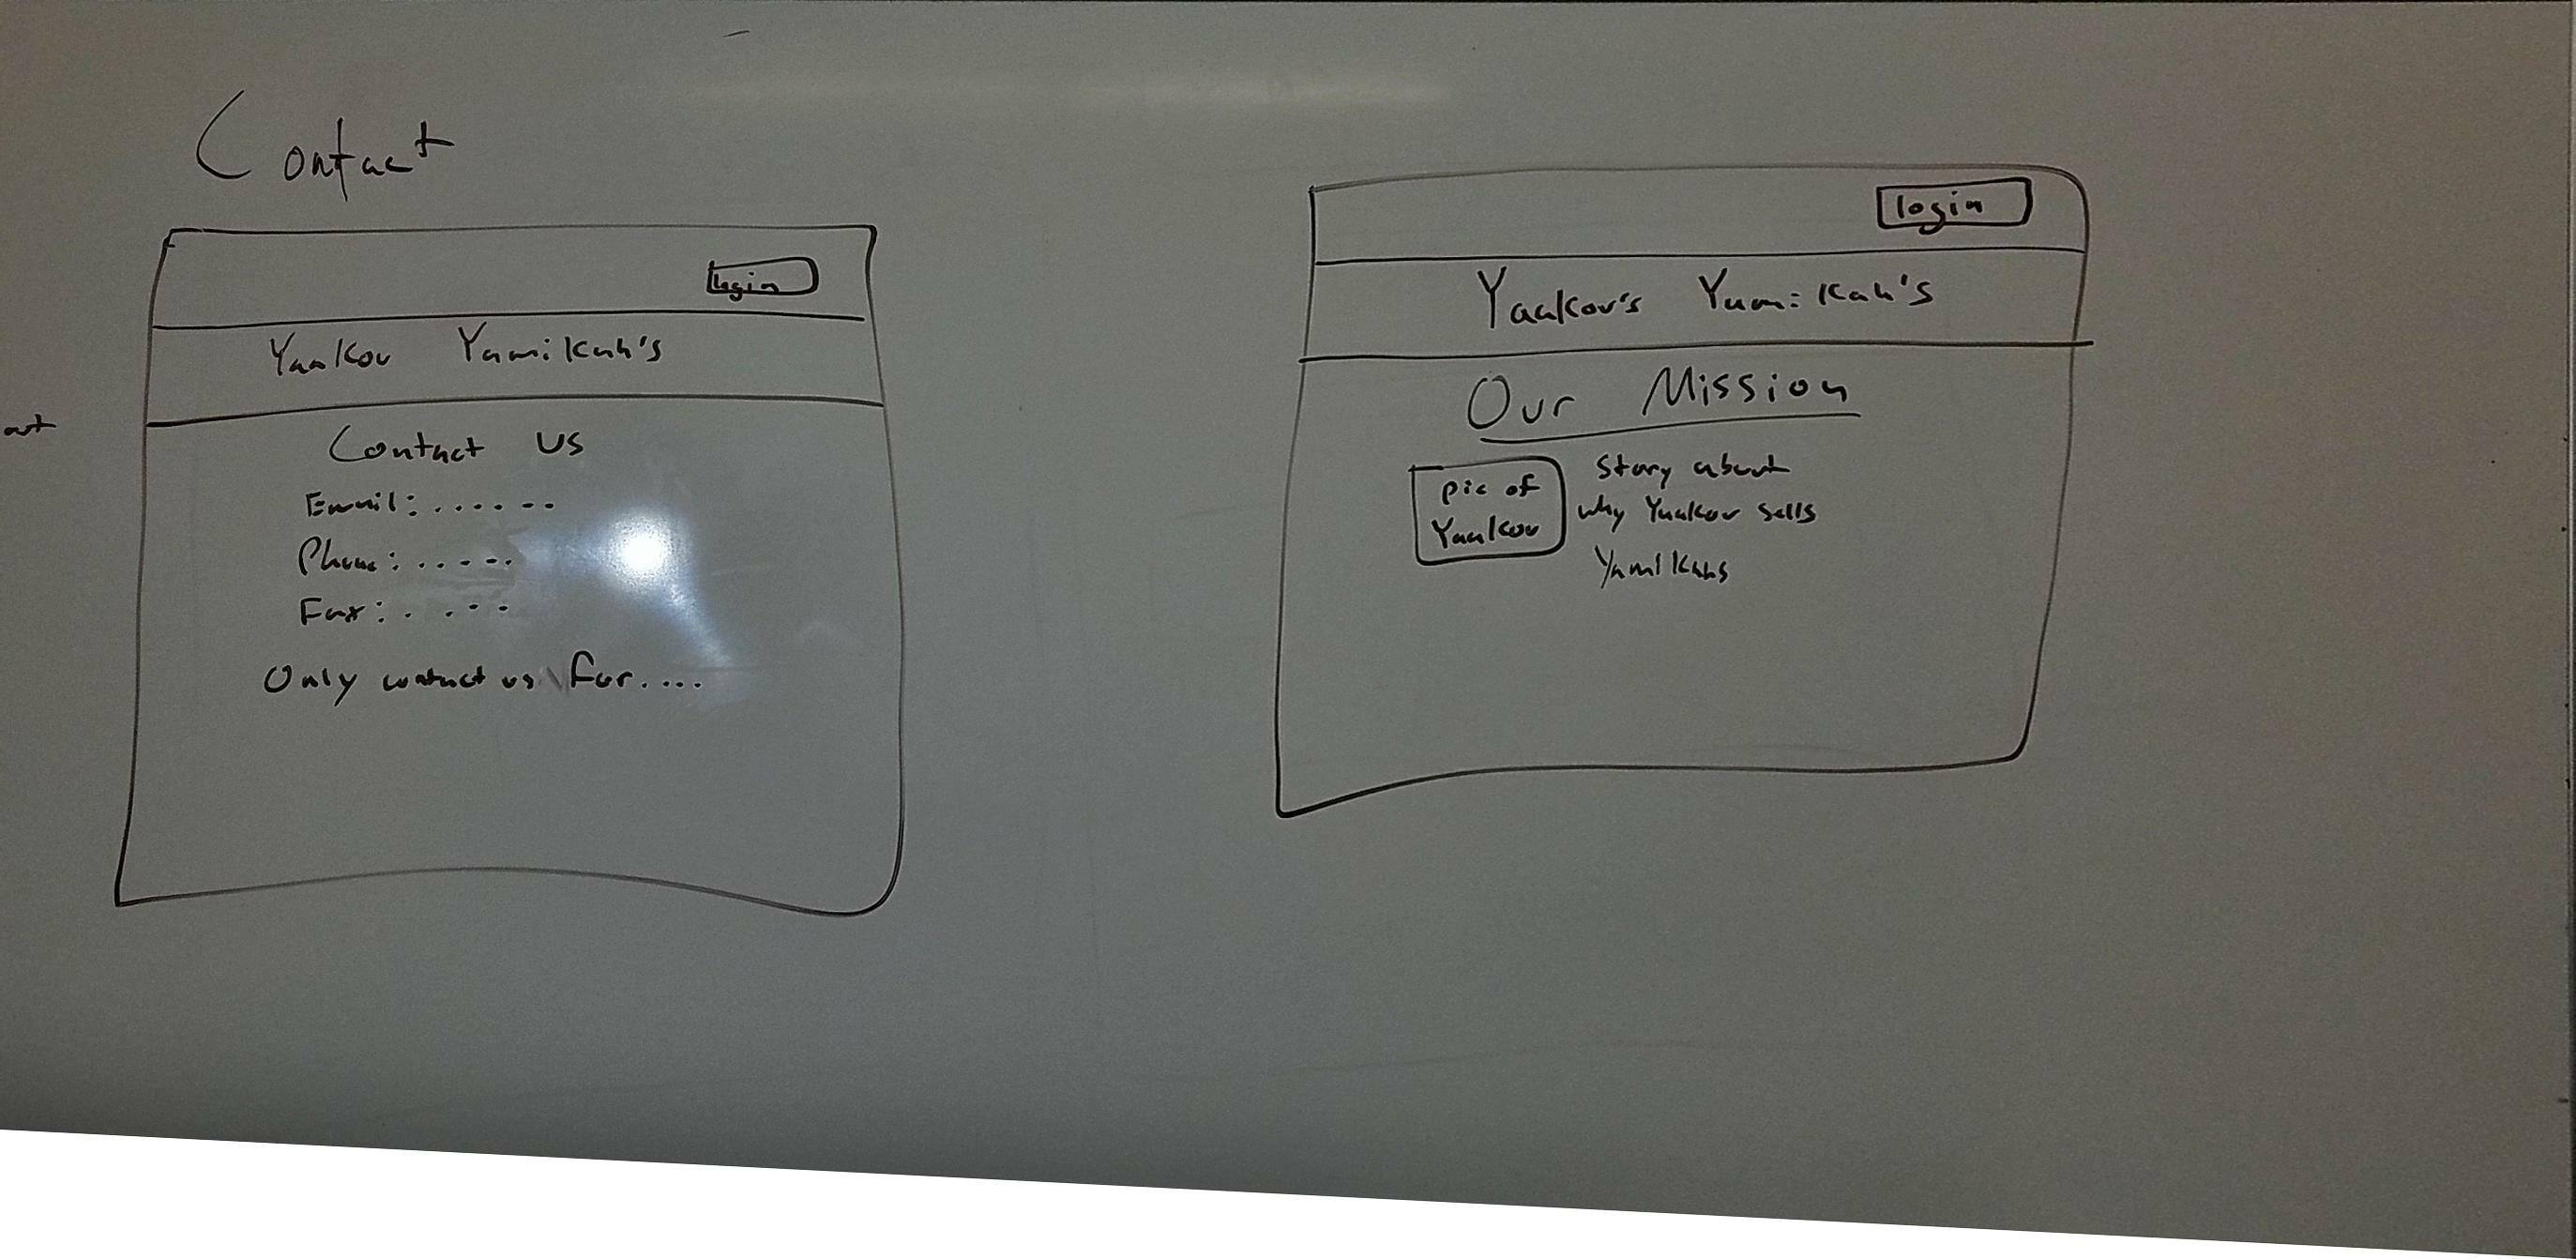 Contact
login
Yaakov Yamikah's
Contact us
Email: ......
Phone: .....
Fax: ....
Only contact us for....
login
Yaakov's Yumikah's
Our Mission
pic of
Yaakov
Story about
why Yaakov sells
Yamikahs